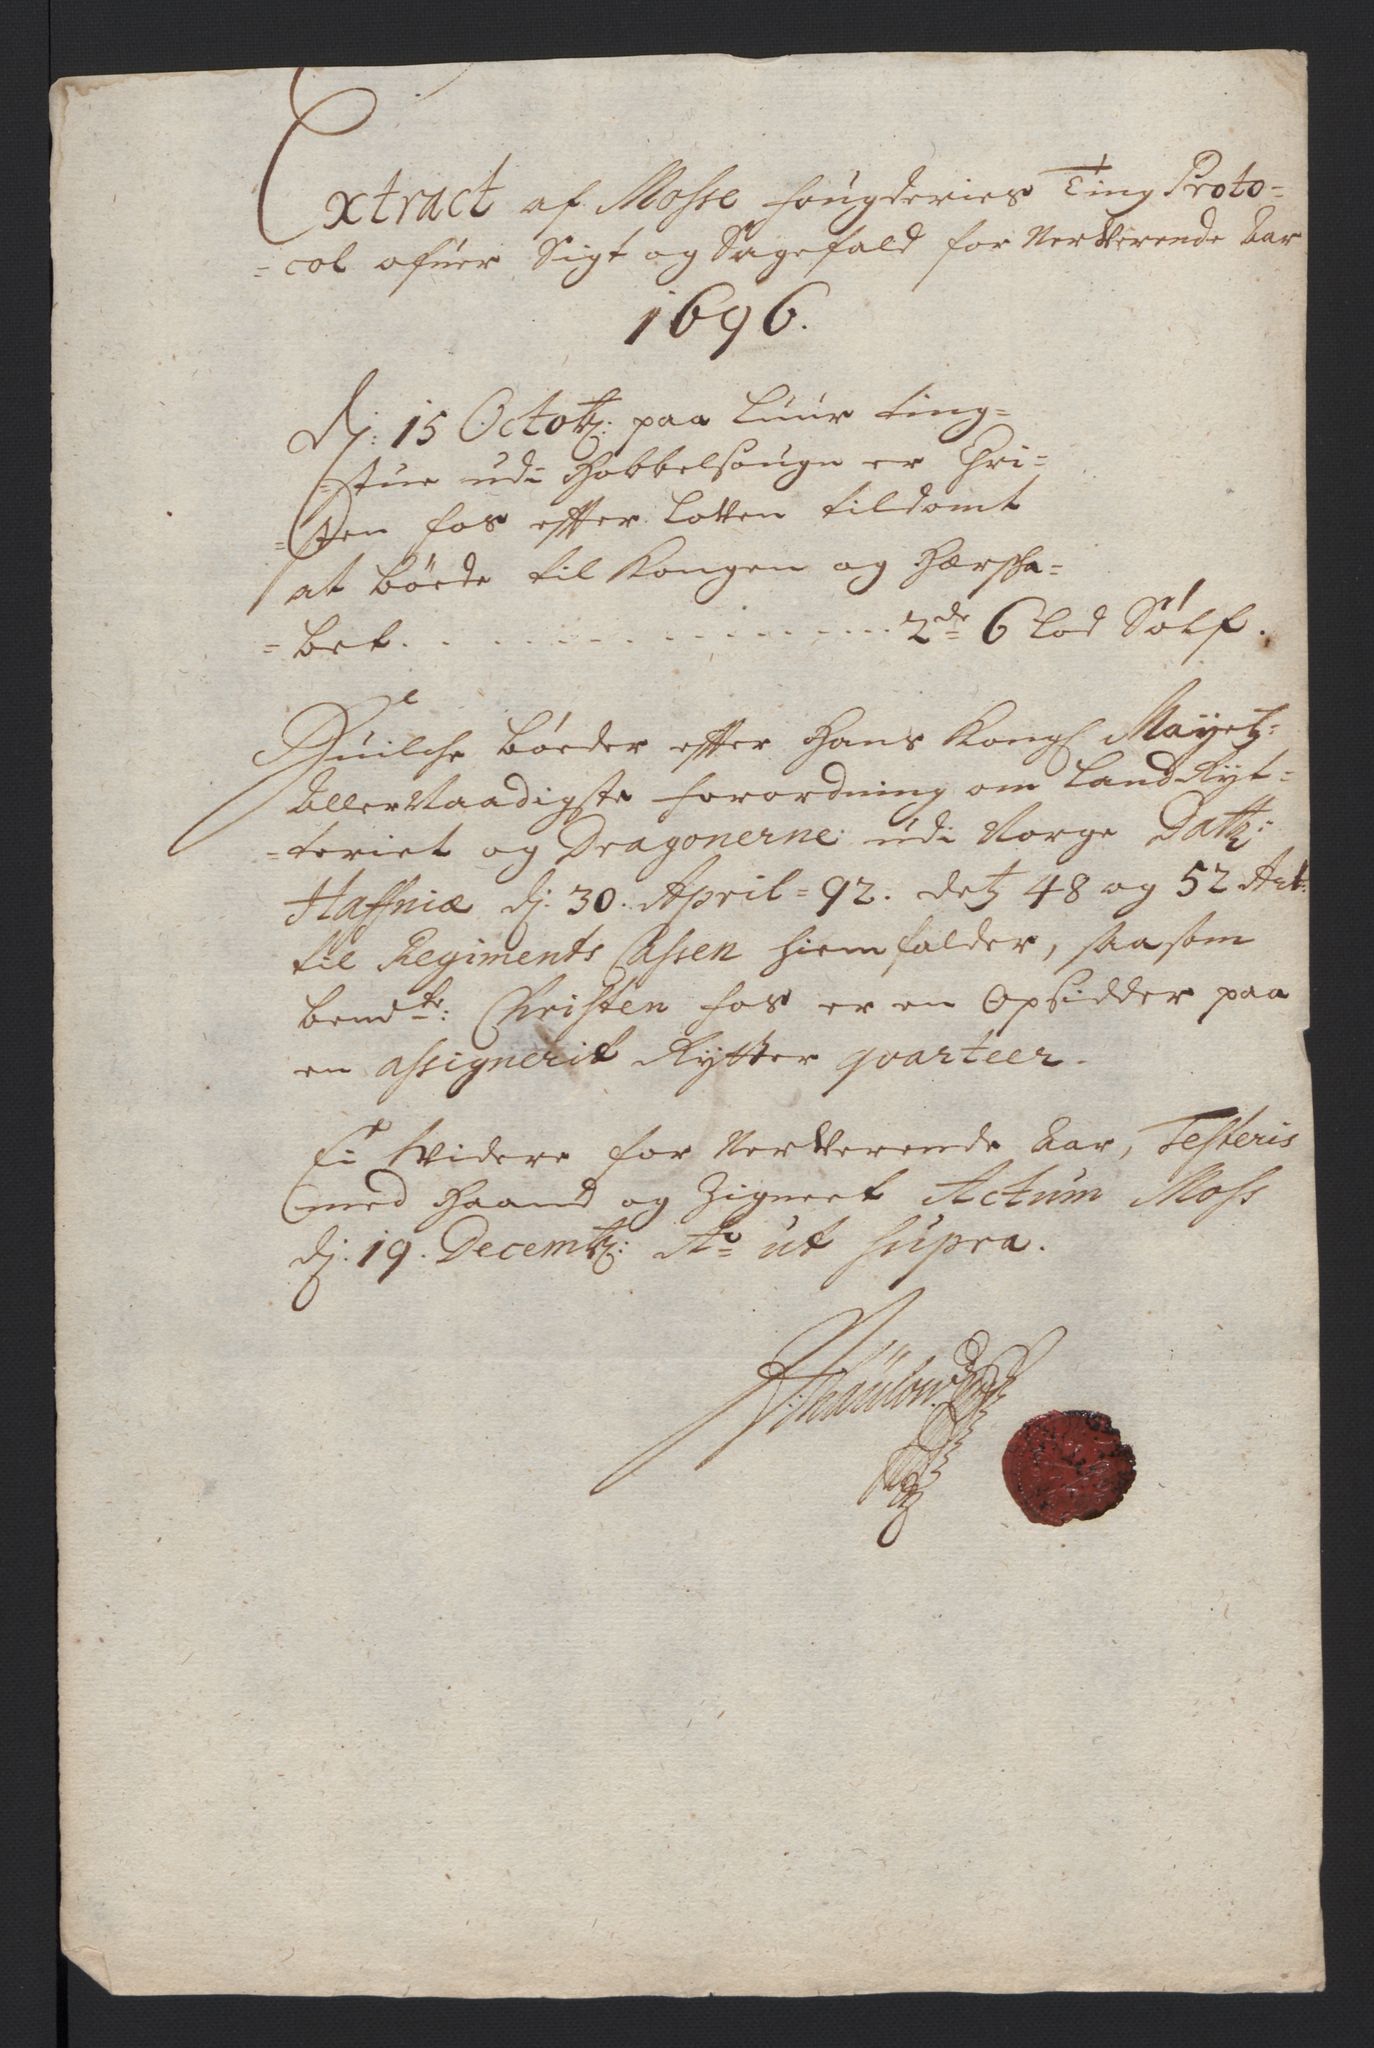 Extract af Mosse fougderies Ting Proto=
=col ofuer Sigt og Sagefald for Nerverende Aar
1696.
dj: 15 Octobr: paa Luur ting=
=stue udi Hobbelsougn er Chri=
=sten fos efter Lowen tildømt
at bøede til Kongen og Herska=
=bet . . . . . . . . . . . . . . 2de 6 Lod Sølf.
Huilche bøeder efter Hans Kongl Mayetz:
Allernaadigste forordning om Land Ryt=
=teriet og Dragonerne udi Norge Dattr:
Haffniæ dj: 30. April= 92. detz 48 og 52 Art:
til Regiments Cassen hiemfalder, saasom
bemdte: Christen fos er en Opsidder paa
en assignerit Rytter qvarteer.
Ei Widere for Nerverende Aar, Testeris
med Haand og Zigneet Actum Moss
dj: 19. Decembr: Ao ut supra.